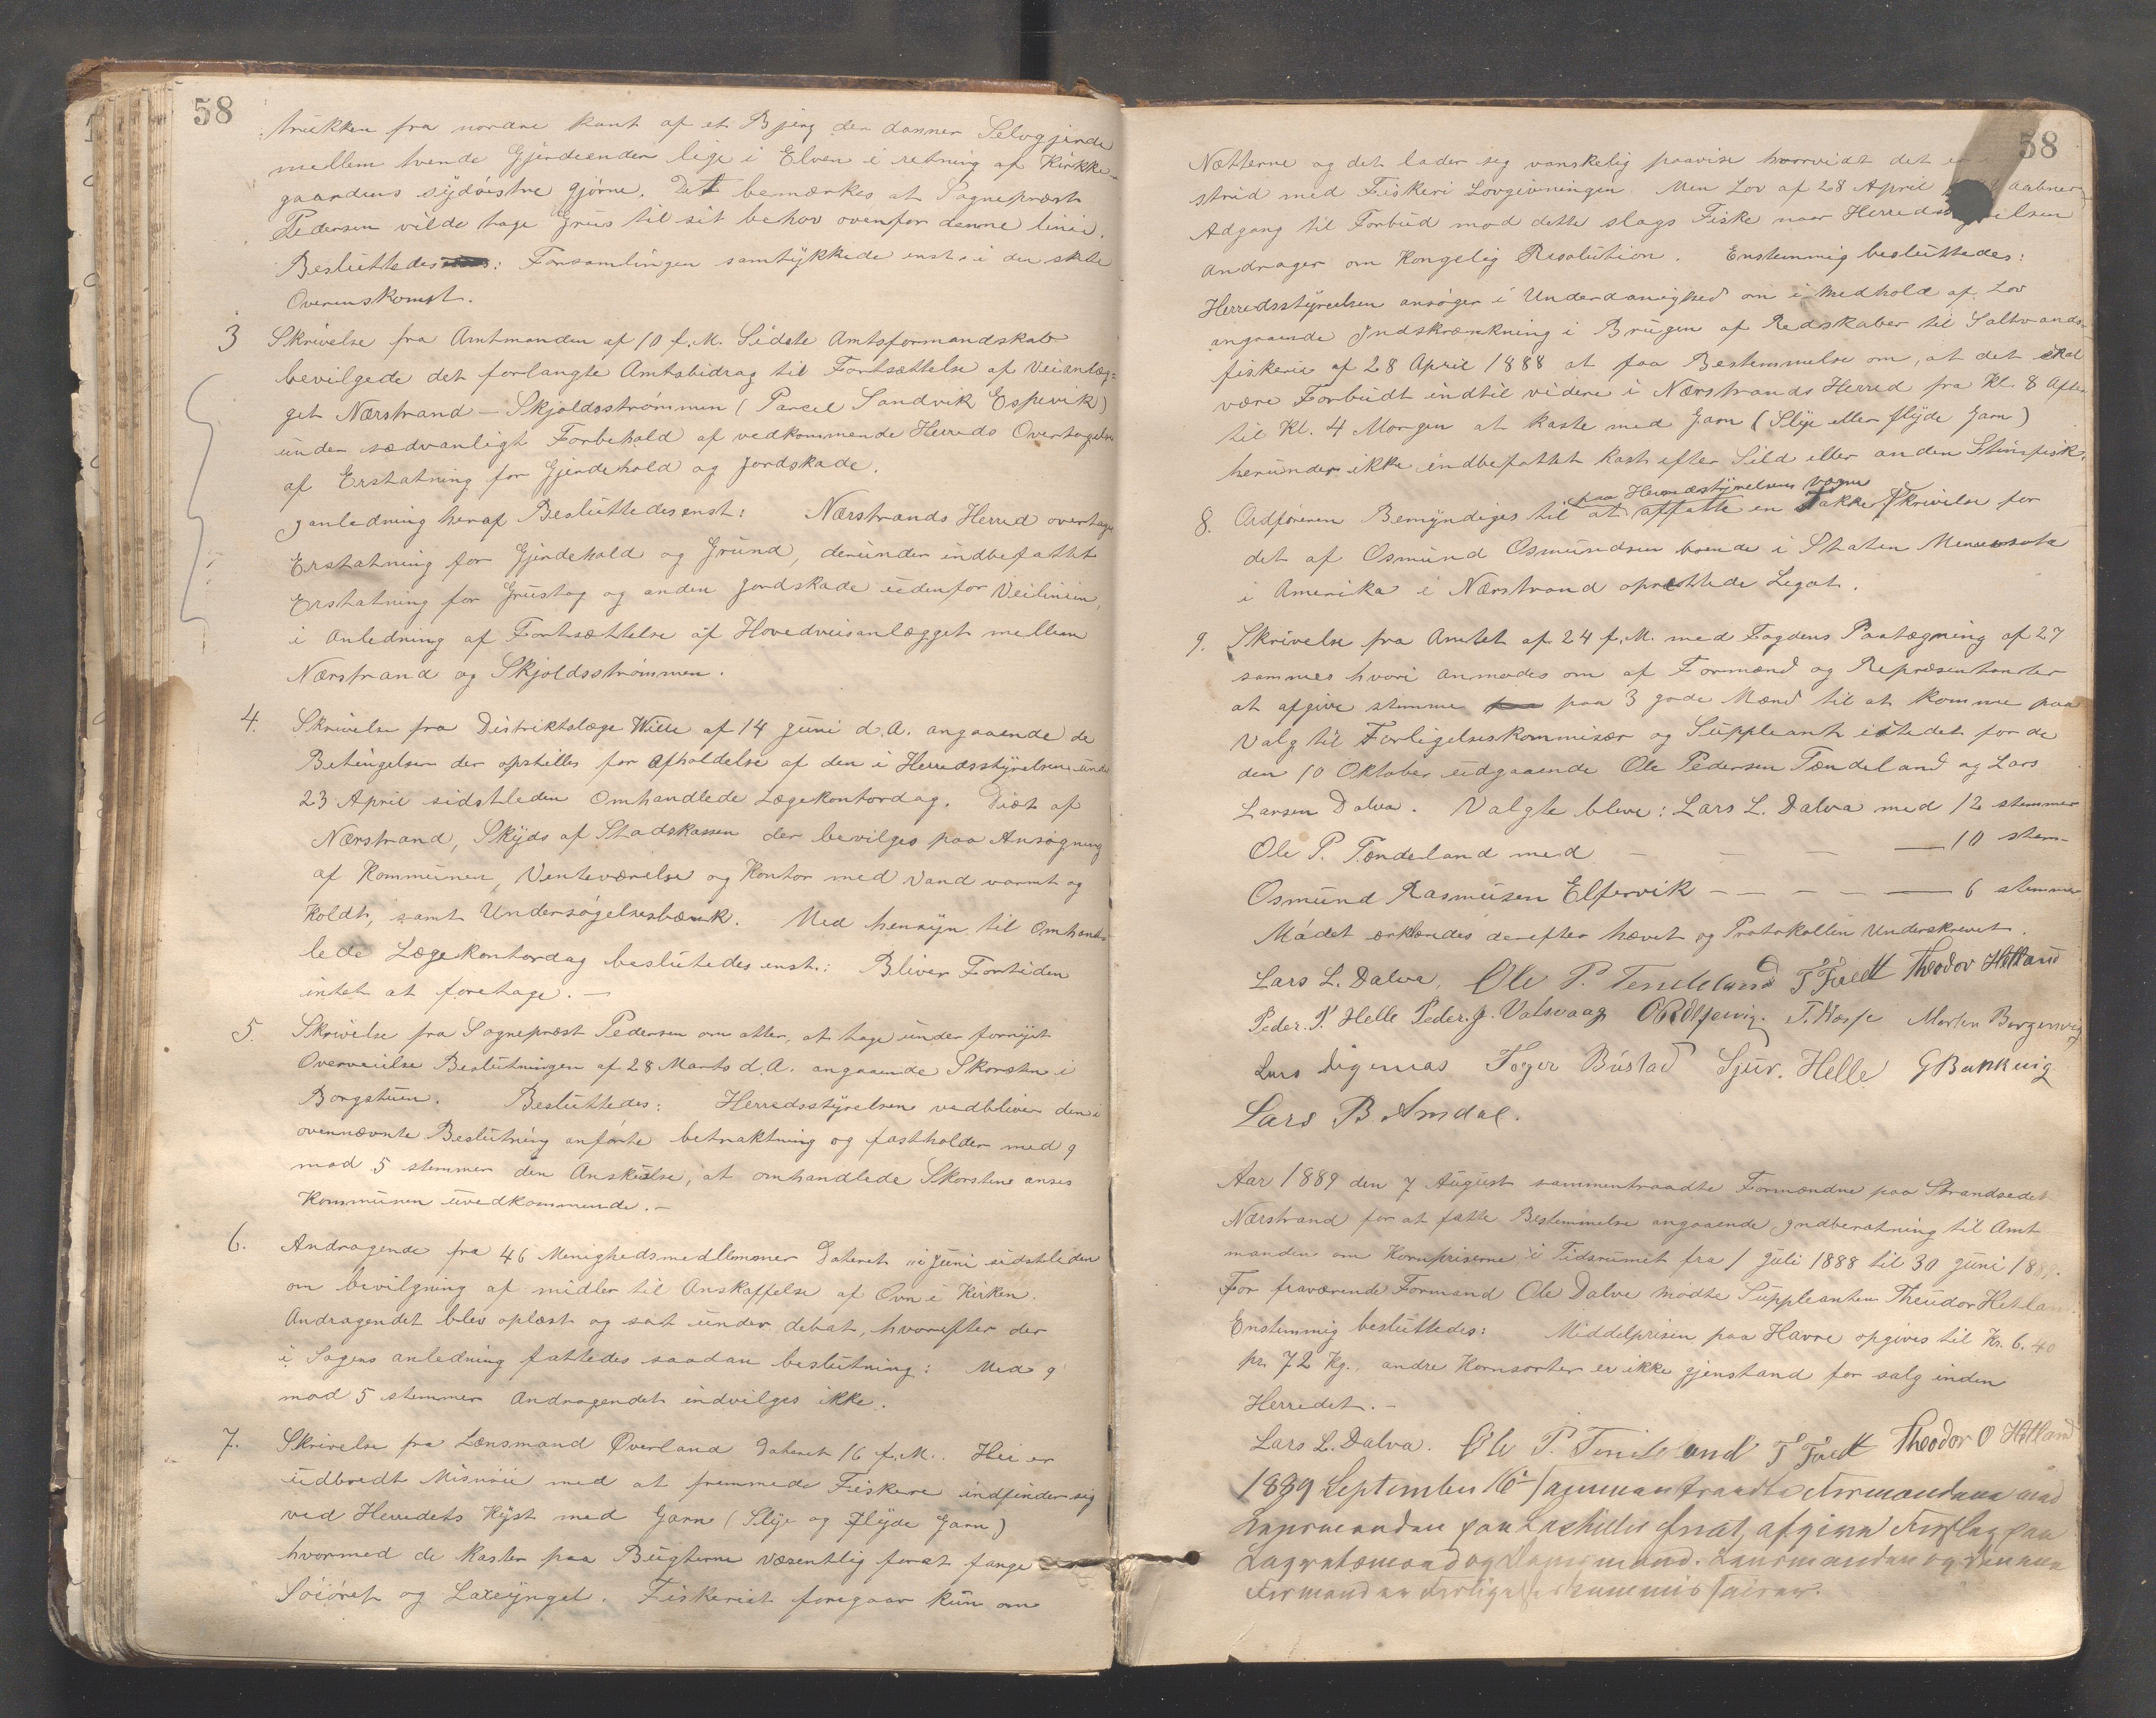 58
trukken fra nordre kant af et Bjerg der danner Selvgjerde
mellem tvende Gjerdeender lige i Elven i retning af Kirkke-
gaardens sydöstre Hjörne. Det bemærkes at Sognepræst
Pedersen vilde tage Grus til sit behov ovenfor denne linie.
Besluttedes: Forsamlingen samtykkede enst. i den skete
Overenskomst.
3 Skrivelse fra Amtmanden af 10 f.M. Sidste Amtsformandskab
bevilgede det forlangte Amtsbidrag til Fortsættelse af Veianlæg=
get Nærstrand – Skjoldsströmmen (Parcel Sandvik Espevik)
under sædvanligt Forbehold af vedkommende Herreds Overtagelse
af Erstatning for Gjerdehold og Jordskade.
I anledning heraf Besluttedes enst: Nærstrands Herred overtager
Erstatning for Gjerdehold og Grund, derunder indbefattet
Erstatning for Grustag og anden Jordskade udenfor Veilinien,
i Anledning af Fortsættelse af Hovedveisanlægget mellem
Nærstrand og Skjoldsströmmen.
4. Skrivelse fra Distriktslæge Wille af 14 Juni d.A. angaaende de
Betingelser der opstilles for Afholdelse af den i Herredsstyrelsen under
23 April sidstleden Omhandlede Lægekontordag. Diæt af
Nærstrand, Skyds af Stadskassen der bevilges paa Ansögning
af Kommunen, Venteværelse og Kontor med Vand varmt og
Koldt, samt Undersögelsesbænk. Med hensyn til Omhand-
lede Lægekontordag beslutedes enst.: Bliver Fortiden
intet at foretage. –
5. Skrivelse fra Sognepræst Pedersen om atter, at tage under fornyet
Overveielse Beslutningen af 28 Marts d.A. angaaende Skorstene i
Borgstuen. Besluttedes: Herredsstyrelsen vedbliver den i
ovennævnte Beslutning anförte betraktning og fastholder med 9
mod 5 stemmer den Anskuelse, at omhandlede Skorstene anses
Kommunen uvedkommende. –
6. Andragende fra 46 Menighedsmedlemmer Dateret i Juni sidstleden
om bevilgning af midler til Anskaffelse af Ovn i Kirken.
Andragendet blev oplæst og sat under debat, hvorefter der
i Sagens anledning fattedes saadan beslutning: Med 9
mod 5 stemmer Andragendet indvilges ikke.
7. Skrivelse fra Lænsmand Överland Dateret 16 f.M. Her er
udbredt Misnöie med at fremmede Fiskere indfinder sig
ved Herredets Kyst med Garn (Slye og Flyde Garn)
hvormed de Kaster paa Bugterne væsentlig forat fange
Söiöret og Laxeyngel. Fiskeriet foregaar kun om
58
Nætterne og det lader seg vanskelig paavise hvorvidt det er
strid med Fiskeri Lovgivningen. Men Lov af 28 April aabner
Adgang til Forbud mod dette slags Fiske naar Herredsstyrelsen
andrager om Kongelig Resolution. Enstemmig besluttedes:
Herredsstyrelsen ansöger i Underdanighed om i Medhold af Lov
angaaende Indskrænkning i Brugen af Redskaber til Saltvands-
fiskerie af 28 April 1888 at faa Bestemmelse om, at det skal
være Forbudt indtil videre i Nærstrands Herred fra Kl. 8 Aften
til Kl. 4 Morgen at kaste med Garn (Slye eller flyde Garn)
herunder ikke indbefattet kast efter Sild eller anden Stimfisk.
paa Herredsstyrelsens vegne
8. Ordföreren Bemyndiges til at affatte en Takke Skrivelse for
det af Osmund Osmundsen boende i Staten Mennesota
i Amerika i Nærstrand oprettede Legat.
9. Skrivelse fra Amtet af 24 f.M. med Fogdens Paategning af 27
sammes hvori anmodes om af Formænd og Repræsentanter
at afgive stemme paa 3 gode Mænd til at komme paa
Valg til Forligelseskommisær og Suppleant istedet for de
den 10 Oktober udgaaende Ole Pedersen Tændeland og Lars
Larsen Dalva. Valgte bleve: Lars L. Dalva med 12 stemmer
Ole P. Tændeland med – – – — 10 stem-
Osmund Rasmusen Elfervik – – – – — 6 stemmer
Mödet erklæredes derefter hævet og Protokollen Underskrevet.
Lars L. Dalva, Ole P. Tendeland T Tvedt Theodor Hetland
Peder. P. Helle Peder. J. Vatsvaag T. Næsse Morten Borgenvig
Lars Digernæs Toger Bustad Sjur. Helle G Bakkevig
Lars B Amdal.
Aar 1889 den 7 August sammentraadte Formændne paa Strandsedet
Nærstrand for at fatte Bestemmelse angaaende Indberetning til Amt
manden om Kornpriserne i Tidsrumet fra 1 Juli 1888 til 30 Juni 1889.
For fraværende Formand Ole Dalve mödte Suppleanten Theudor Hetland.
Enstemmig besluttedes: Middelprisen paa Havre opgives til Kr. 6.40
pr. 72 Kg., andre Kornsorter er ikke gjenstand for salg inden
Herredet. –
Lars L. Dalva. Ole P. Tendeland T Tvedt Theodor O Hetland
1889 September 16 sammentraadte Formændene med
Lensmanden paa forat, afgive Forslag paa
Lagretsmænd og mænd. Lensmanden og
Formænd er Forligelseskommissairer.